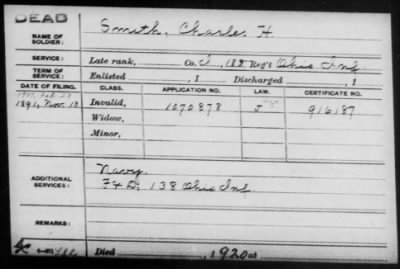 DEAD
NAME OF SOLDIER: Smith, Charles H
SERVICE: Late rank, Co. I, 188 Reg't Ohio Inf
TERM OF SERVICE: Enlisted , 1 Discharged , 1
DATE OF FILING. CLASS. APPLICATION NO. LAW. CERTIFICATE NO.
1891, Nov. 12 Invalid, 1070878 916187
Widow,
Minor,
ADDITIONAL SERVICES: Navy.
F & D, 138 Ohio Inf
REMARKS:
Died , 1920 at